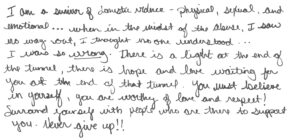 I am a survivor of domestic violence - physical, sexual, and
emotional... when in the midst of the abuse, I saw
no way out, I thought no one understood...
I was so wrong. There is a light at the end of
the tunnel, there is hope and love waiting for
you at the end of that tunnel. You just believe
in yourself, you are worthy of love and respect!
Surround yourself with people who are there to support
you. Never give up!!